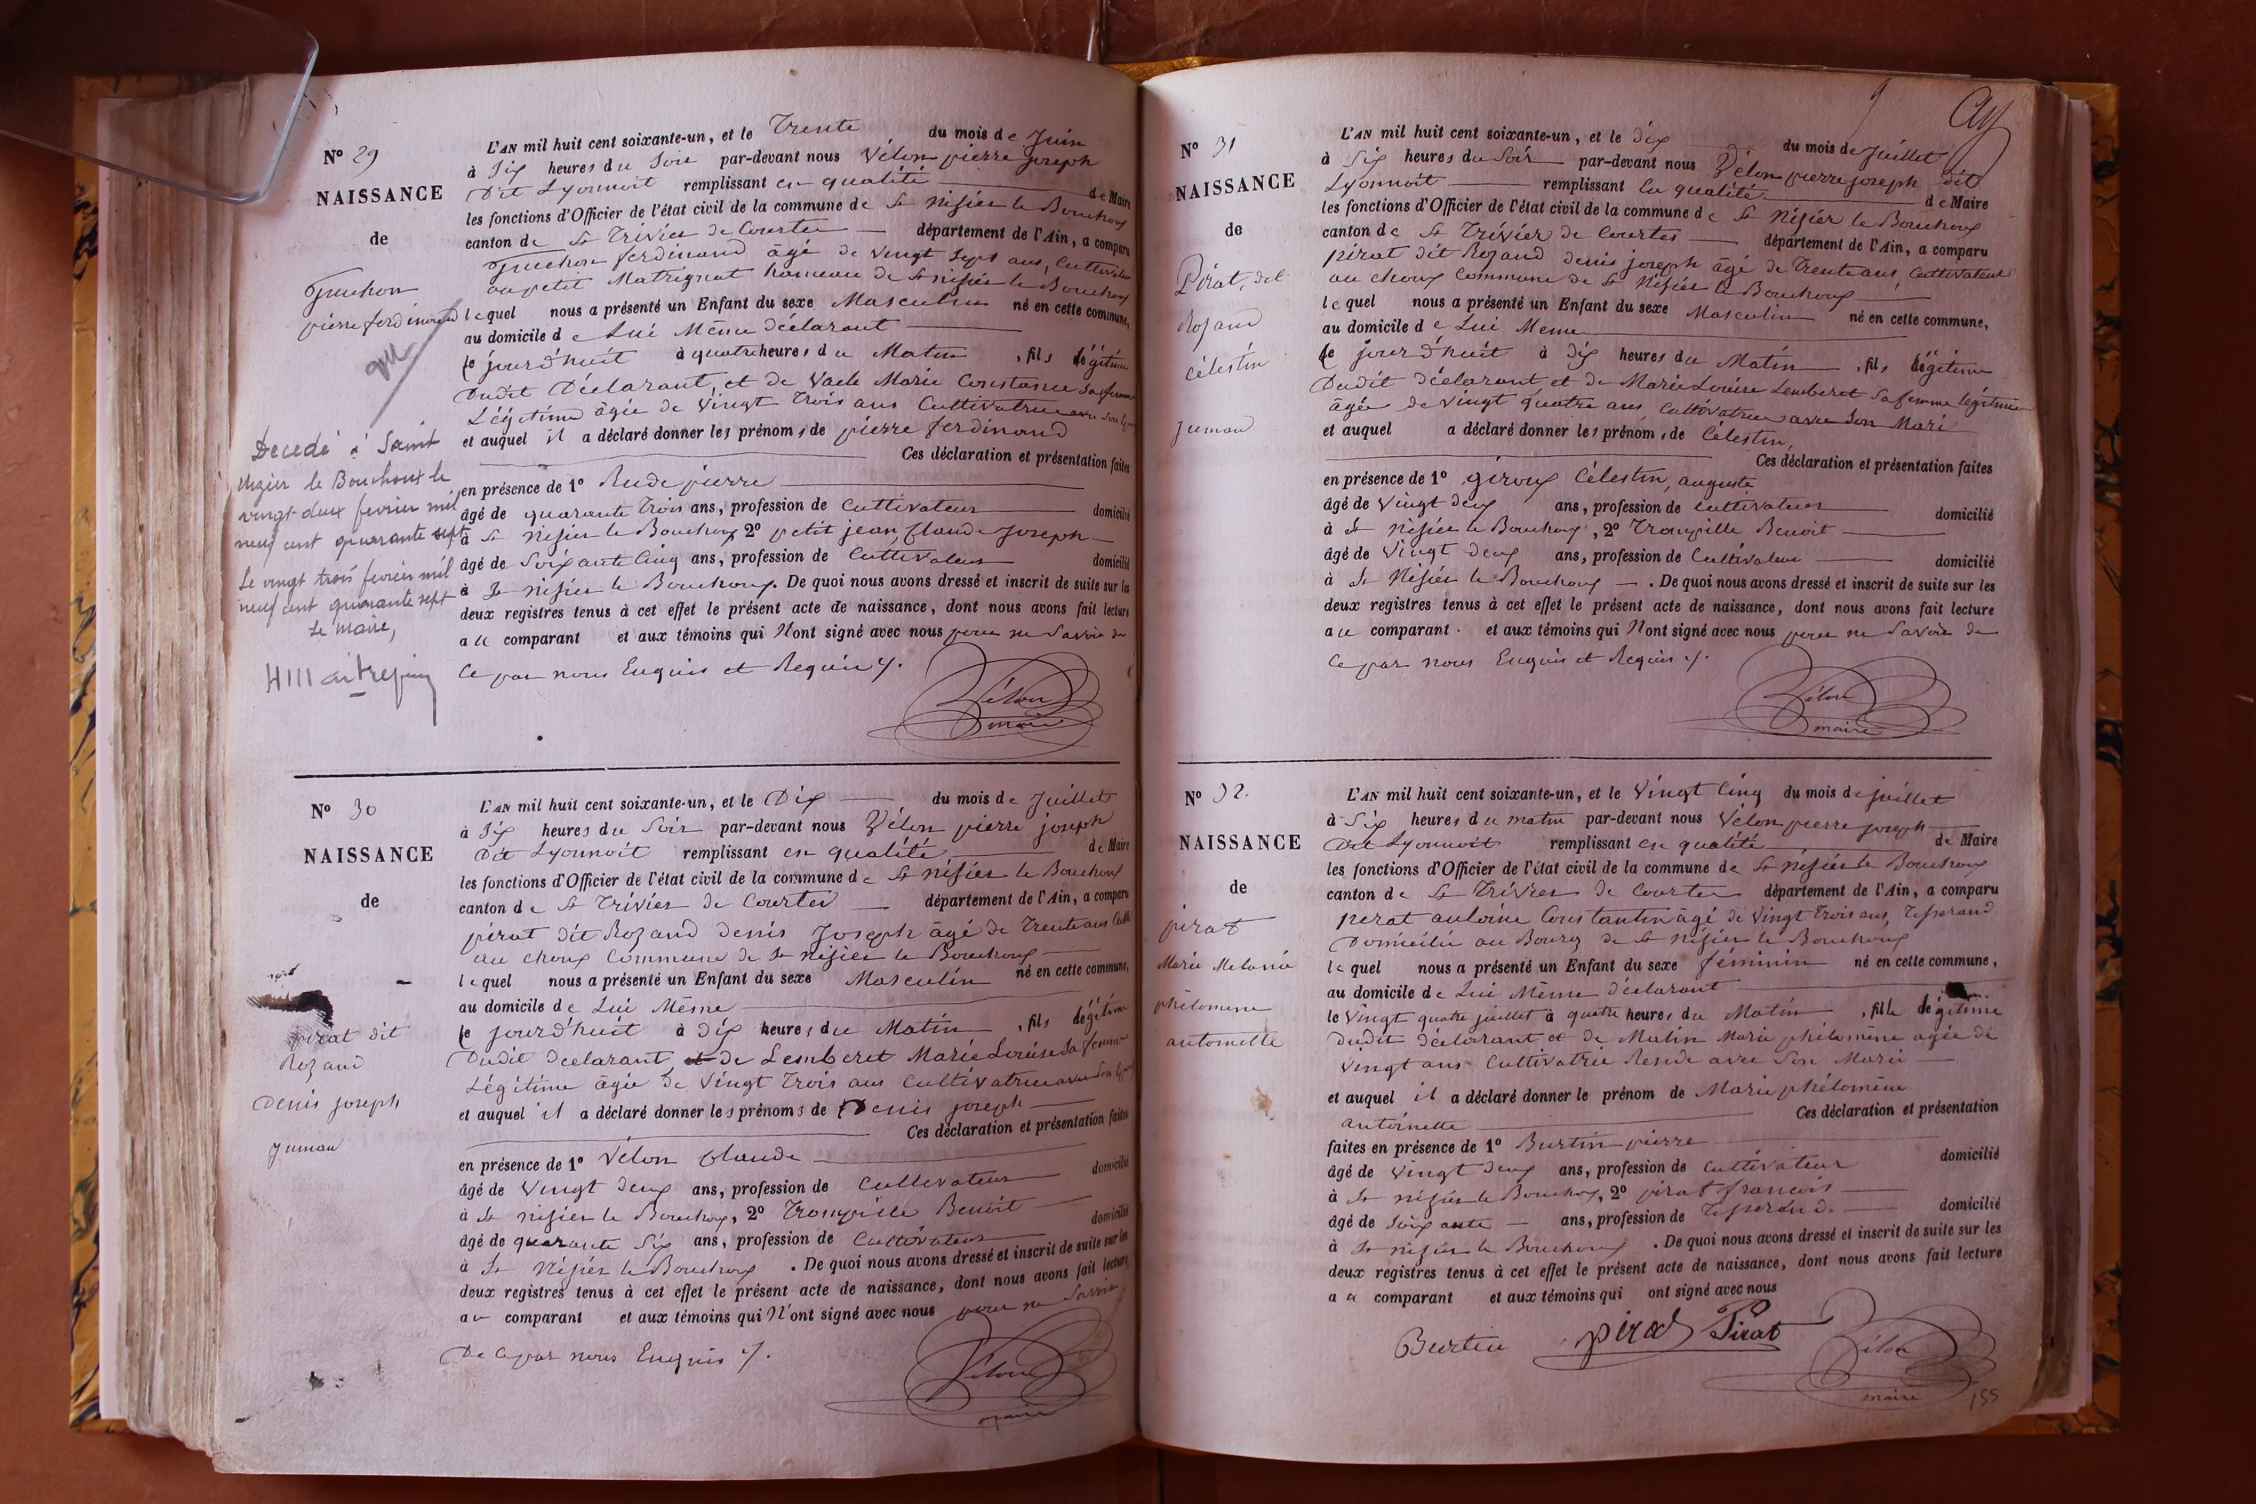 N° 29
NAISSANCE
de
Guichon
pierre ferdinand
Decedé à Saint
Nizier le Bouchoux le
vingt deux février mil
neuf cent quarante sept
Le vingt trois février mil
neuf cent quarante sept
Le maire,
L'AN mil huit cent soixante-un, et le Trente du mois de Juin
à Six heures du Soir par-devant nous Vélon pierre joseph
Dit Lyonnoit remplissant en qualité de Maire
les fonctions d'Officier de l'état civil de la commune de St nisier le Bouchoux
canton de St Trivier de Courtes département de l'Ain, a comparu
Guichon ferdinand âgé de vingt Sept ans, Cultivateur
au petit Matrignat hameau de St nisier le Bouchoux
lequel nous a présenté un Enfant du sexe Masculin né en cette commune,
au domicile de Lui Même déclarant
le jourd'huit à quatre heures du Matin, fils légitime
Dudit Déclarant, et de Vacle Marie Constance Sa femme
Légitime âgée de Vingt Trois ans Cultivatrice avec Son
et auquel il a déclaré donner les prénoms de pierre ferdinand
Ces déclaration et présentation faites
en présence de 1° Rude pierre
âgé de quarante Trois ans, profession de Cultivateur domicilié
à St nisier le Bouchoux 2° petit jean Claude Joseph
âgé de Soixante Cinq ans, profession de Cultivateur domicilié
à St nisier le Bouchoux. De quoi nous avons dressé et inscrit de suite sur les
deux registres tenus à cet effet le présent acte de naissance, dont nous avons fait lecture
au comparant et aux témoins qui N'ont signé avec nous pour ne Savoir de
Ce par nous Enquis et Requis
Vélon
maire
N° 30
NAISSANCE
de
pirat dit
Rozand
Denis joseph
Jumau
L'AN mil huit cent soixante-un, et le Dix du mois de Juillet
à Six heures du Soir par-devant nous Vélon pierre joseph
Dit Lyonnoit remplissant en qualité de Maire
les fonctions d'Officier de l'état civil de la commune de St nisier le Bouchoux
canton de St Trivier de Courtes département de l'Ain, a comparu
pirat dit Rozand denis Joseph âgé de Trente ans
au choux Commune de St nisier le Bouchoux
lequel nous a présenté un Enfant du sexe Masculin né en cette commune,
au domicile de Lui Même
le jourd'huit à dix heures du Matin, fils légitime
Dudit déclarant, et de Lemberet Marie Louise Sa femme
Légitime âgée de Vingt Trois ans Cultivatrice avec Son
et auquel il a déclaré donner les prénoms de Denis joseph
Ces déclaration et présentation faites
en présence de 1° Vélon Claude
âgé de Vingt deux ans, profession de Cultivateur domicilié
à St nisier le Bouchoux, 2° Tronpille Benoit
âgé de quarante Six ans, profession de Cultivateur domicilié
à St Nisier le Bouchoux. De quoi nous avons dressé et inscrit de suite sur les
deux registres tenus à cet effet le présent acte de naissance, dont nous avons fait lecture
au comparant et aux témoins qui N'ont signé avec nous pour ne Savoir
De Ce par nous Enquis
Vélon
maire
N° 31
NAISSANCE
de
Pirat, dit
Rozand
Célestin
Jumau
L'AN mil huit cent soixante-un, et le dix du mois de Juillet
à Six heures du Soir par-devant nous Vélon pierre joseph dit
Lyonnoit remplissant En qualité de Maire
les fonctions d'Officier de l'état civil de la commune de St Nisier le Bouchoux
canton de St Trivier de Courtes département de l'Ain, a comparu
pirat dit Rozand denis joseph âgé de Trente ans, Cultivateur
au choux Commune de St Nisier le Bouchoux
lequel nous a présenté un Enfant du sexe Masculin né en cette commune,
au domicile de Lui Meme
le jourd'huit à dix heures du Matin, fils légitime
Dudit déclarant et de Marie Louise Lemberet Sa femme légitime
âgée de vingt quatre ans, Cultivatrice avec Son Mari
et auquel a déclaré donner les prénoms de Célestin,
Ces déclaration et présentation faites
en présence de 1° giroux Célestin, auguste
âgé de Vingt deux ans, profession de Cultivateur domicilié
à St Nisier le Bouchoux, 2° Tronpille Benoit
âgé de Vingt deux ans, profession de Cultivateur domicilié
à St Nisier le Bouchoux. De quoi nous avons dressé et inscrit de suite sur les
deux registres tenus à cet effet le présent acte de naissance, dont nous avons fait lecture
au comparant. et aux témoins qui N'ont signé avec nous pour ne Savoir de
Ce par nous Enquis et Requis
Vélon
maire
N° 32.
NAISSANCE
de
pirat
Marie Melanie
philomene
antoinette
L'AN mil huit cent soixante-un, et le Vingt Cinq du mois de juillet
à Six heures du matin par-devant nous Vélon pierre joseph
Dit Lyonnoit remplissant en qualité de Maire
les fonctions d'Officier de l'état civil de la commune de St Nisier le Bouchoux
canton de St Trivier de Courtes département de l'Ain, a comparu
pirat antoine Constantin âgé de Vingt Trois ans, Tisserand
Domicilié au Bourg de St Nisier le Bouchoux
lequel nous a présenté un Enfant du sexe féminin né en cette commune,
au domicile de Lui Même déclarant
le Vingt quatre juillet à quatre heures du Matin, fille légitime
Dudit déclarant et de Matin Marie philomène agée de
vingt ans Cultivatrice avec Son Mari
et auquel il a déclaré donner le prénom de Marie philomène
antoinette Ces déclaration et présentation
faites en présence de 1° Burtin pierre
âgé de Vingt deux ans, profession de Cultivateur domicilié
à St nisier le Bouchoux, 2° pirat francois
âgé de Soixante ans, profession de Tisserand domicilié
à St nisier le Bouchoux. De quoi nous avons dressé et inscrit de suite sur les
deux registres tenus à cet effet le présent acte de naissance, dont nous avons fait lecture
au comparant et aux témoins qui ont signé avec nous
Burtin pirat Pirat Vélon
maire
155